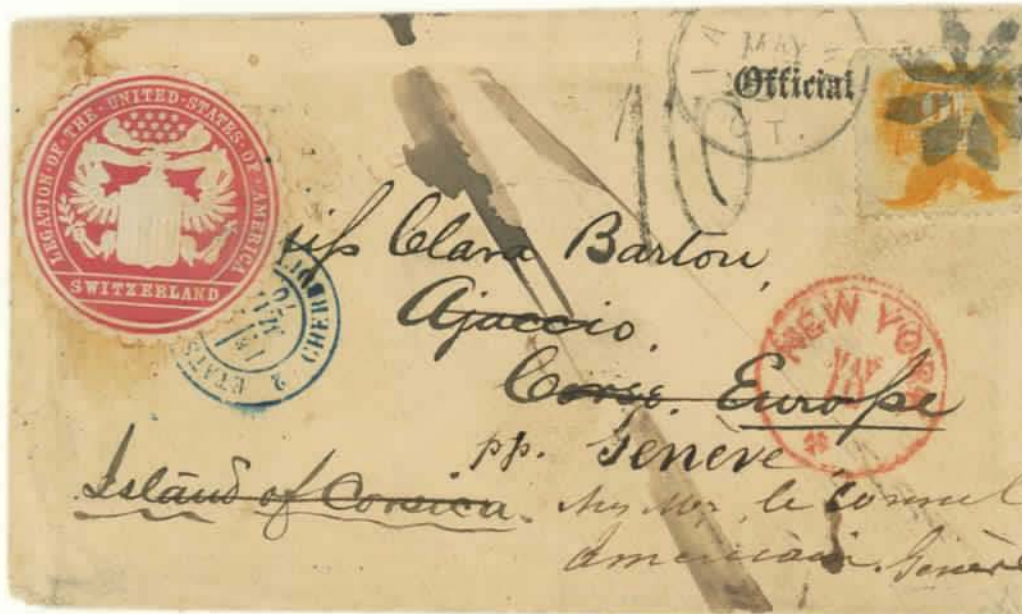 LEGATION · OF · THE · UNITED · STATES · OF · AMERICA
SWITZERLAND
Official
MAY
10
Miss Clara Barton,
Ajaccio.
Corse. Europe
pp. Genève,
Island of Corsica.
le Consul
Américain. Genève
NEW YORK
MAY
2 ETATS CHERBOURG